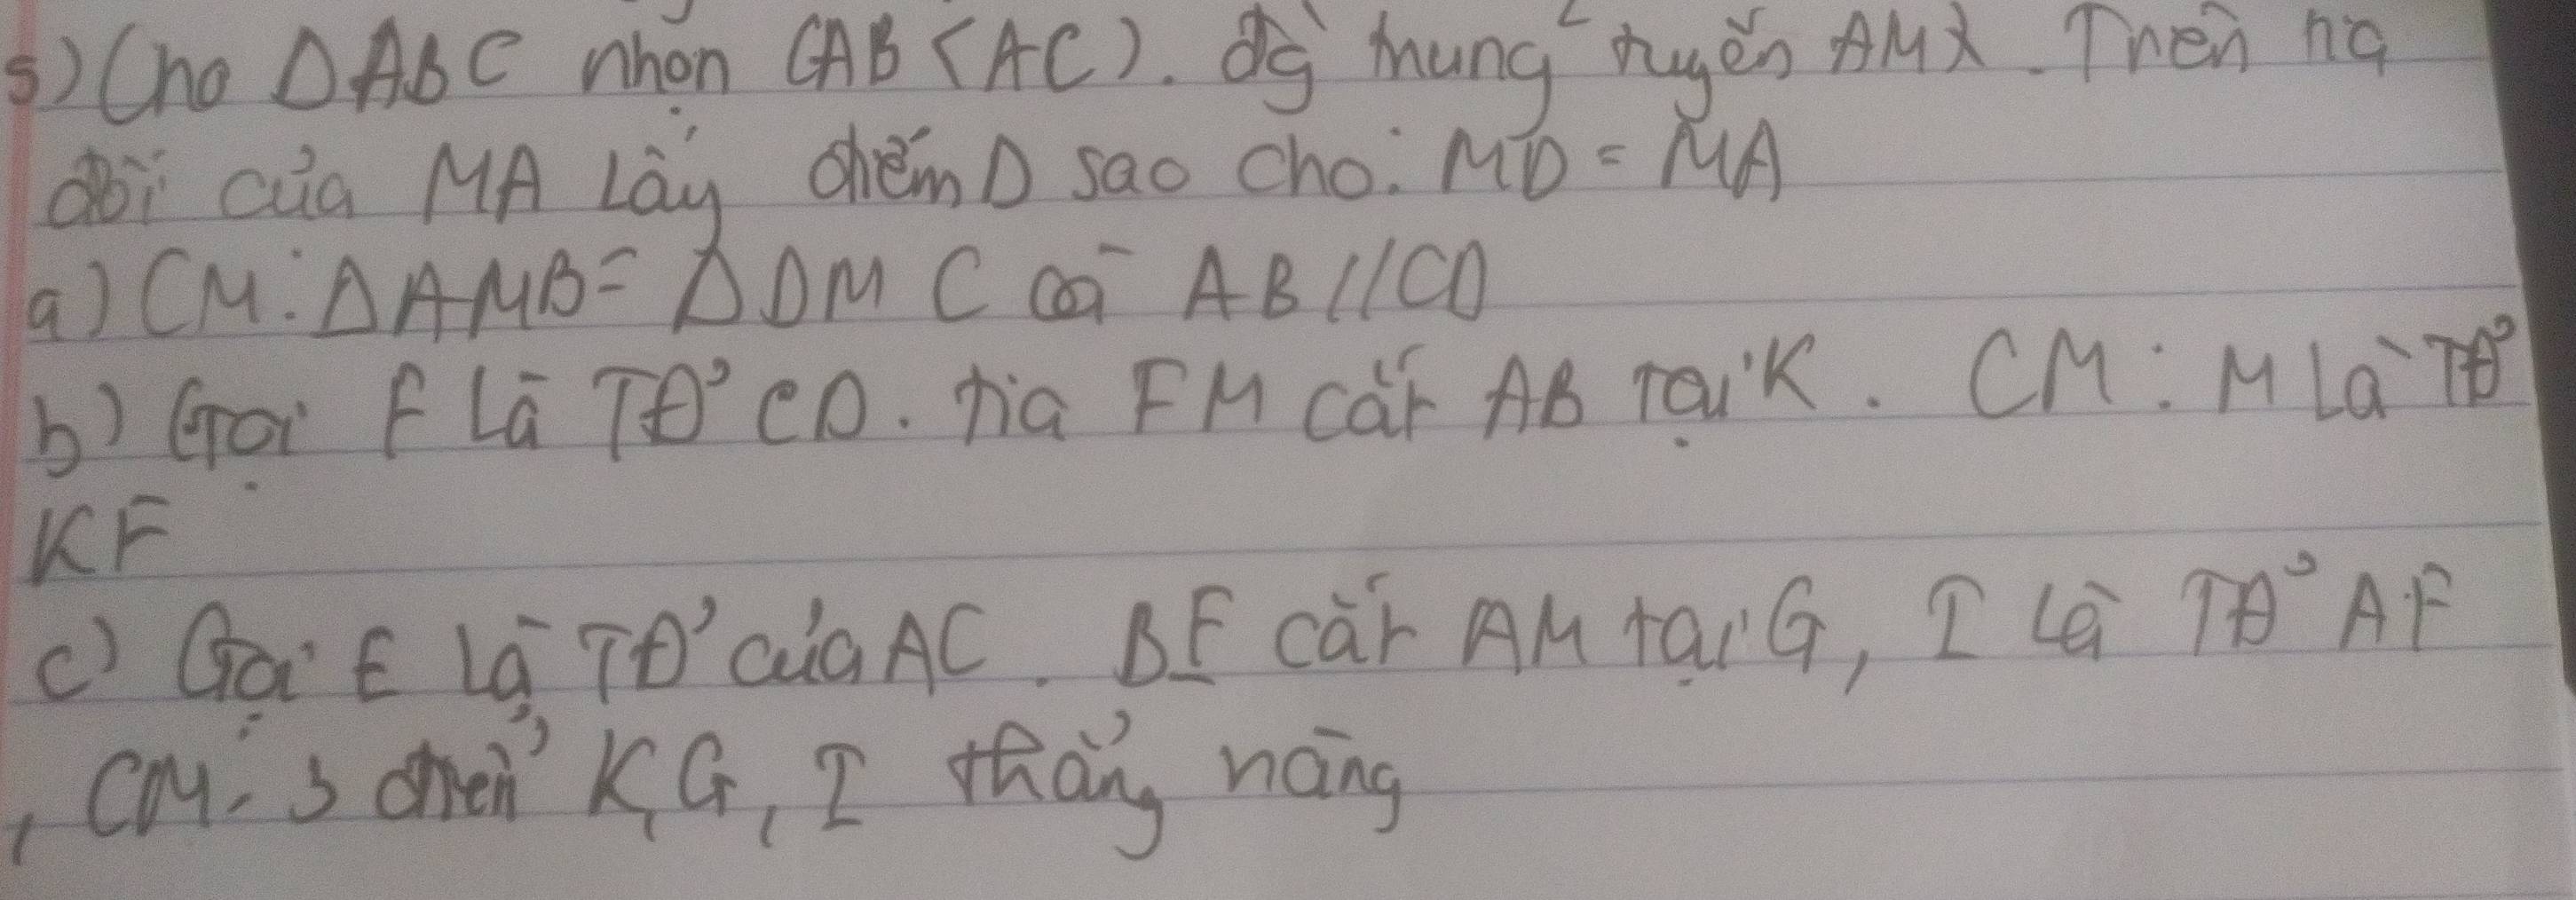 5) Cho ΔABC nhọn (AB < AC). đg trung tuyến AM. Trên tia
đối của MA Lấy điểm D sao cho: MD = MA
a) CM: ΔAMB = ΔDMC và AB // CD
b) Gọi F Là TĐ' CD. tia FM cắt AB Tại K. CM: M Là TĐ'
KF
c) Gọi E Là TĐ' của AC. BE cắt AM tại G, I Là TĐ' AF
, CM: 3 điểm K, G, I thẳng hàng